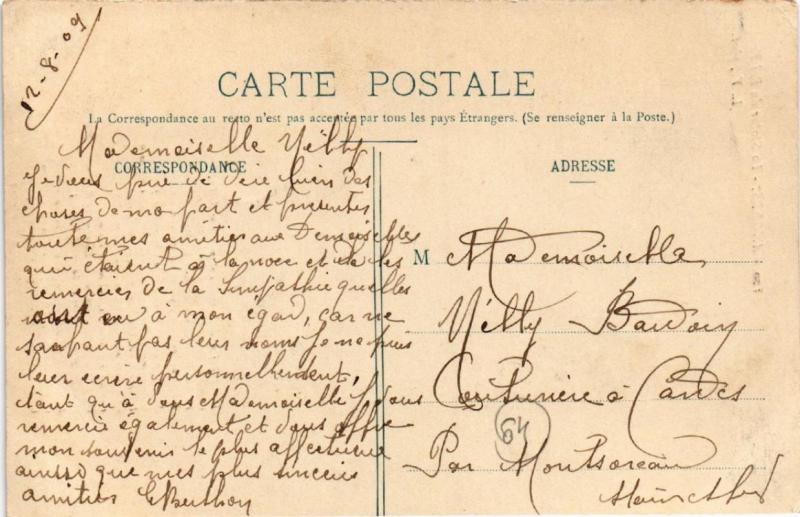 12-8-09
CARTE POSTALE
La Correspondance au recto n'est pas acceptée par tous les pays Étrangers. (Se renseigner à la Poste.)
Mademoiselle Nelly
CORRESPONDANCE
Je vous prie de dire bien des
choses de ma part et présentés
toute mes amitiés aux Demoiselles
qui étaient à la noce et de les
remercies de la Simpathie quelles
ont eu à mon égard, car ne
sachant pas leur noms Je ne puis
leur ecrire personnellement,
tant qu'à vous Mademoiselle Je vous
remercie également et vous offre
mon souvenir le plus affectueux
ainssi que mes plus sincères
amitiés Berthon
ADRESSE
M Mademoiselle
Nelly Baudoin
Couturière à Candes
64
Par Montsoreau